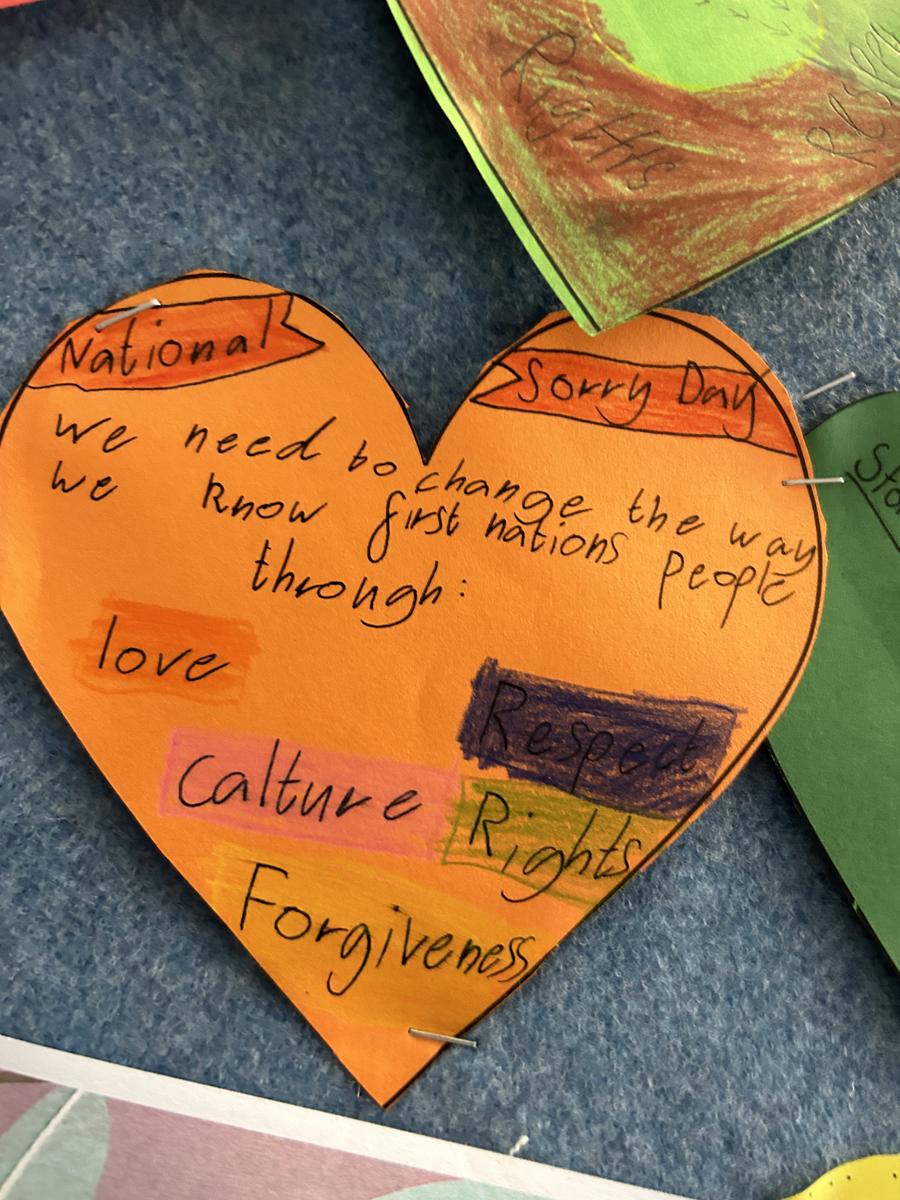 Rights
National
Sorry Day
We need to change the way
we know first nations people
through:
love
Respect
Calture
Rights
Forgiveness